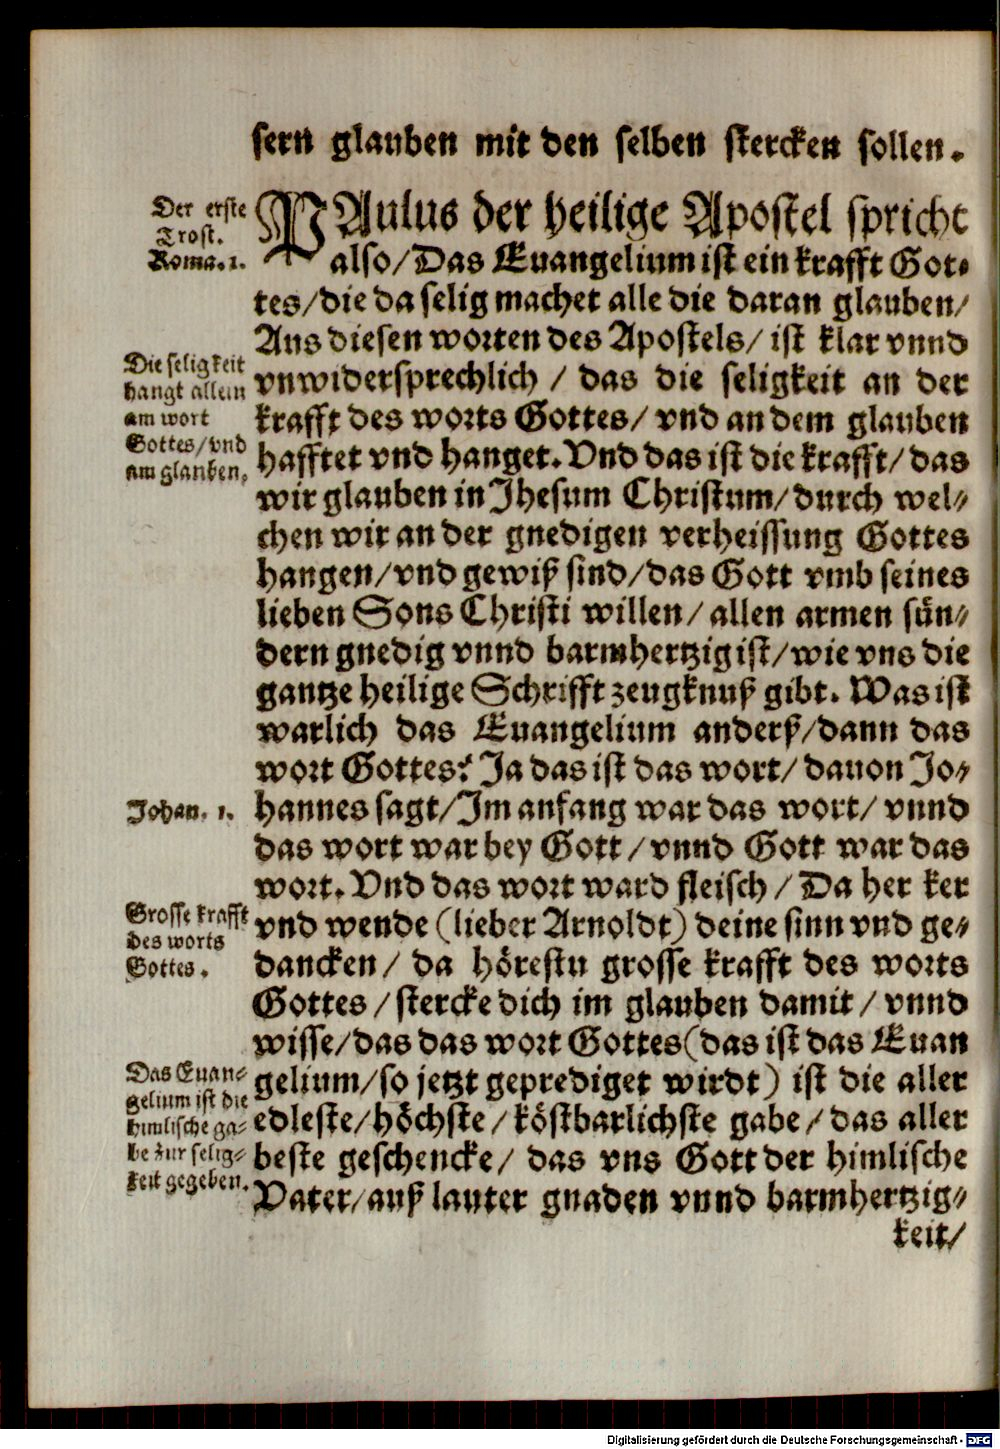 sern glauben mit den selben stercken sollen.
Der erste
Trost.
Roma. 1.
PAulus der heilige Apostel spricht
also/Das Euangelium ist ein krafft Got-
tes/die da selig machet alle die daran glauben/
Aus diesen worten des Apostels/ ist klar vnnd
Die seligkeit
hangt allein
am wort
Gottes/vnd
am glauben.
vnwidersprechlich / das die seligkeit an der
krafft des worts Gottes/ vnd an dem glauben
hafftet vnd hanget. Vnd das ist die krafft/ das
wir glauben in Jhesum Christum/ durch wel-
chen wir an der gnedigen verheissung Gottes
hangen/vnd gewiß sind/das Gott vmb seines
lieben Sons Christi willen/ allen armen sün-
dern gnedig vnnd barmhertzig ist/wie vns die
gantze heilige Schrifft zeugknuß gibt. Was ist
warlich das Euangelium anderß/dann das
wort Gottes? Ja das ist das wort/ dauon Jo-
Johan. 1.
hannes sagt/Im anfang war das wort/ vnnd
das wort war bey Gott/vnnd Gott war das
wort. Vnd das wort ward fleisch / Da her ker
Grosse krafft
des worts
Gottes.
vnd wende (lieber Arnoldt) deine sinn vnd ge-
dancken/ da hörestu grosse krafft des worts
Gottes /stercke dich im glauben damit/ vnnd
wisse/das das wort Gottes(das ist das Euan
Das Euan-
gelium ist die
himlische ga-
be zur selig-
keit gegeben.
gelium/so jetzt geprediget wirdt) ist die aller
edleste/höchste/köstbarlichste gabe/das aller
beste geschencke/ das vns Gott der himlische
Vater/auß lauter gnaden vnnd barmhertzig-
keit/
Digitalisierung gefördert durch die Deutsche Forschungsgemeinschaft - DFG